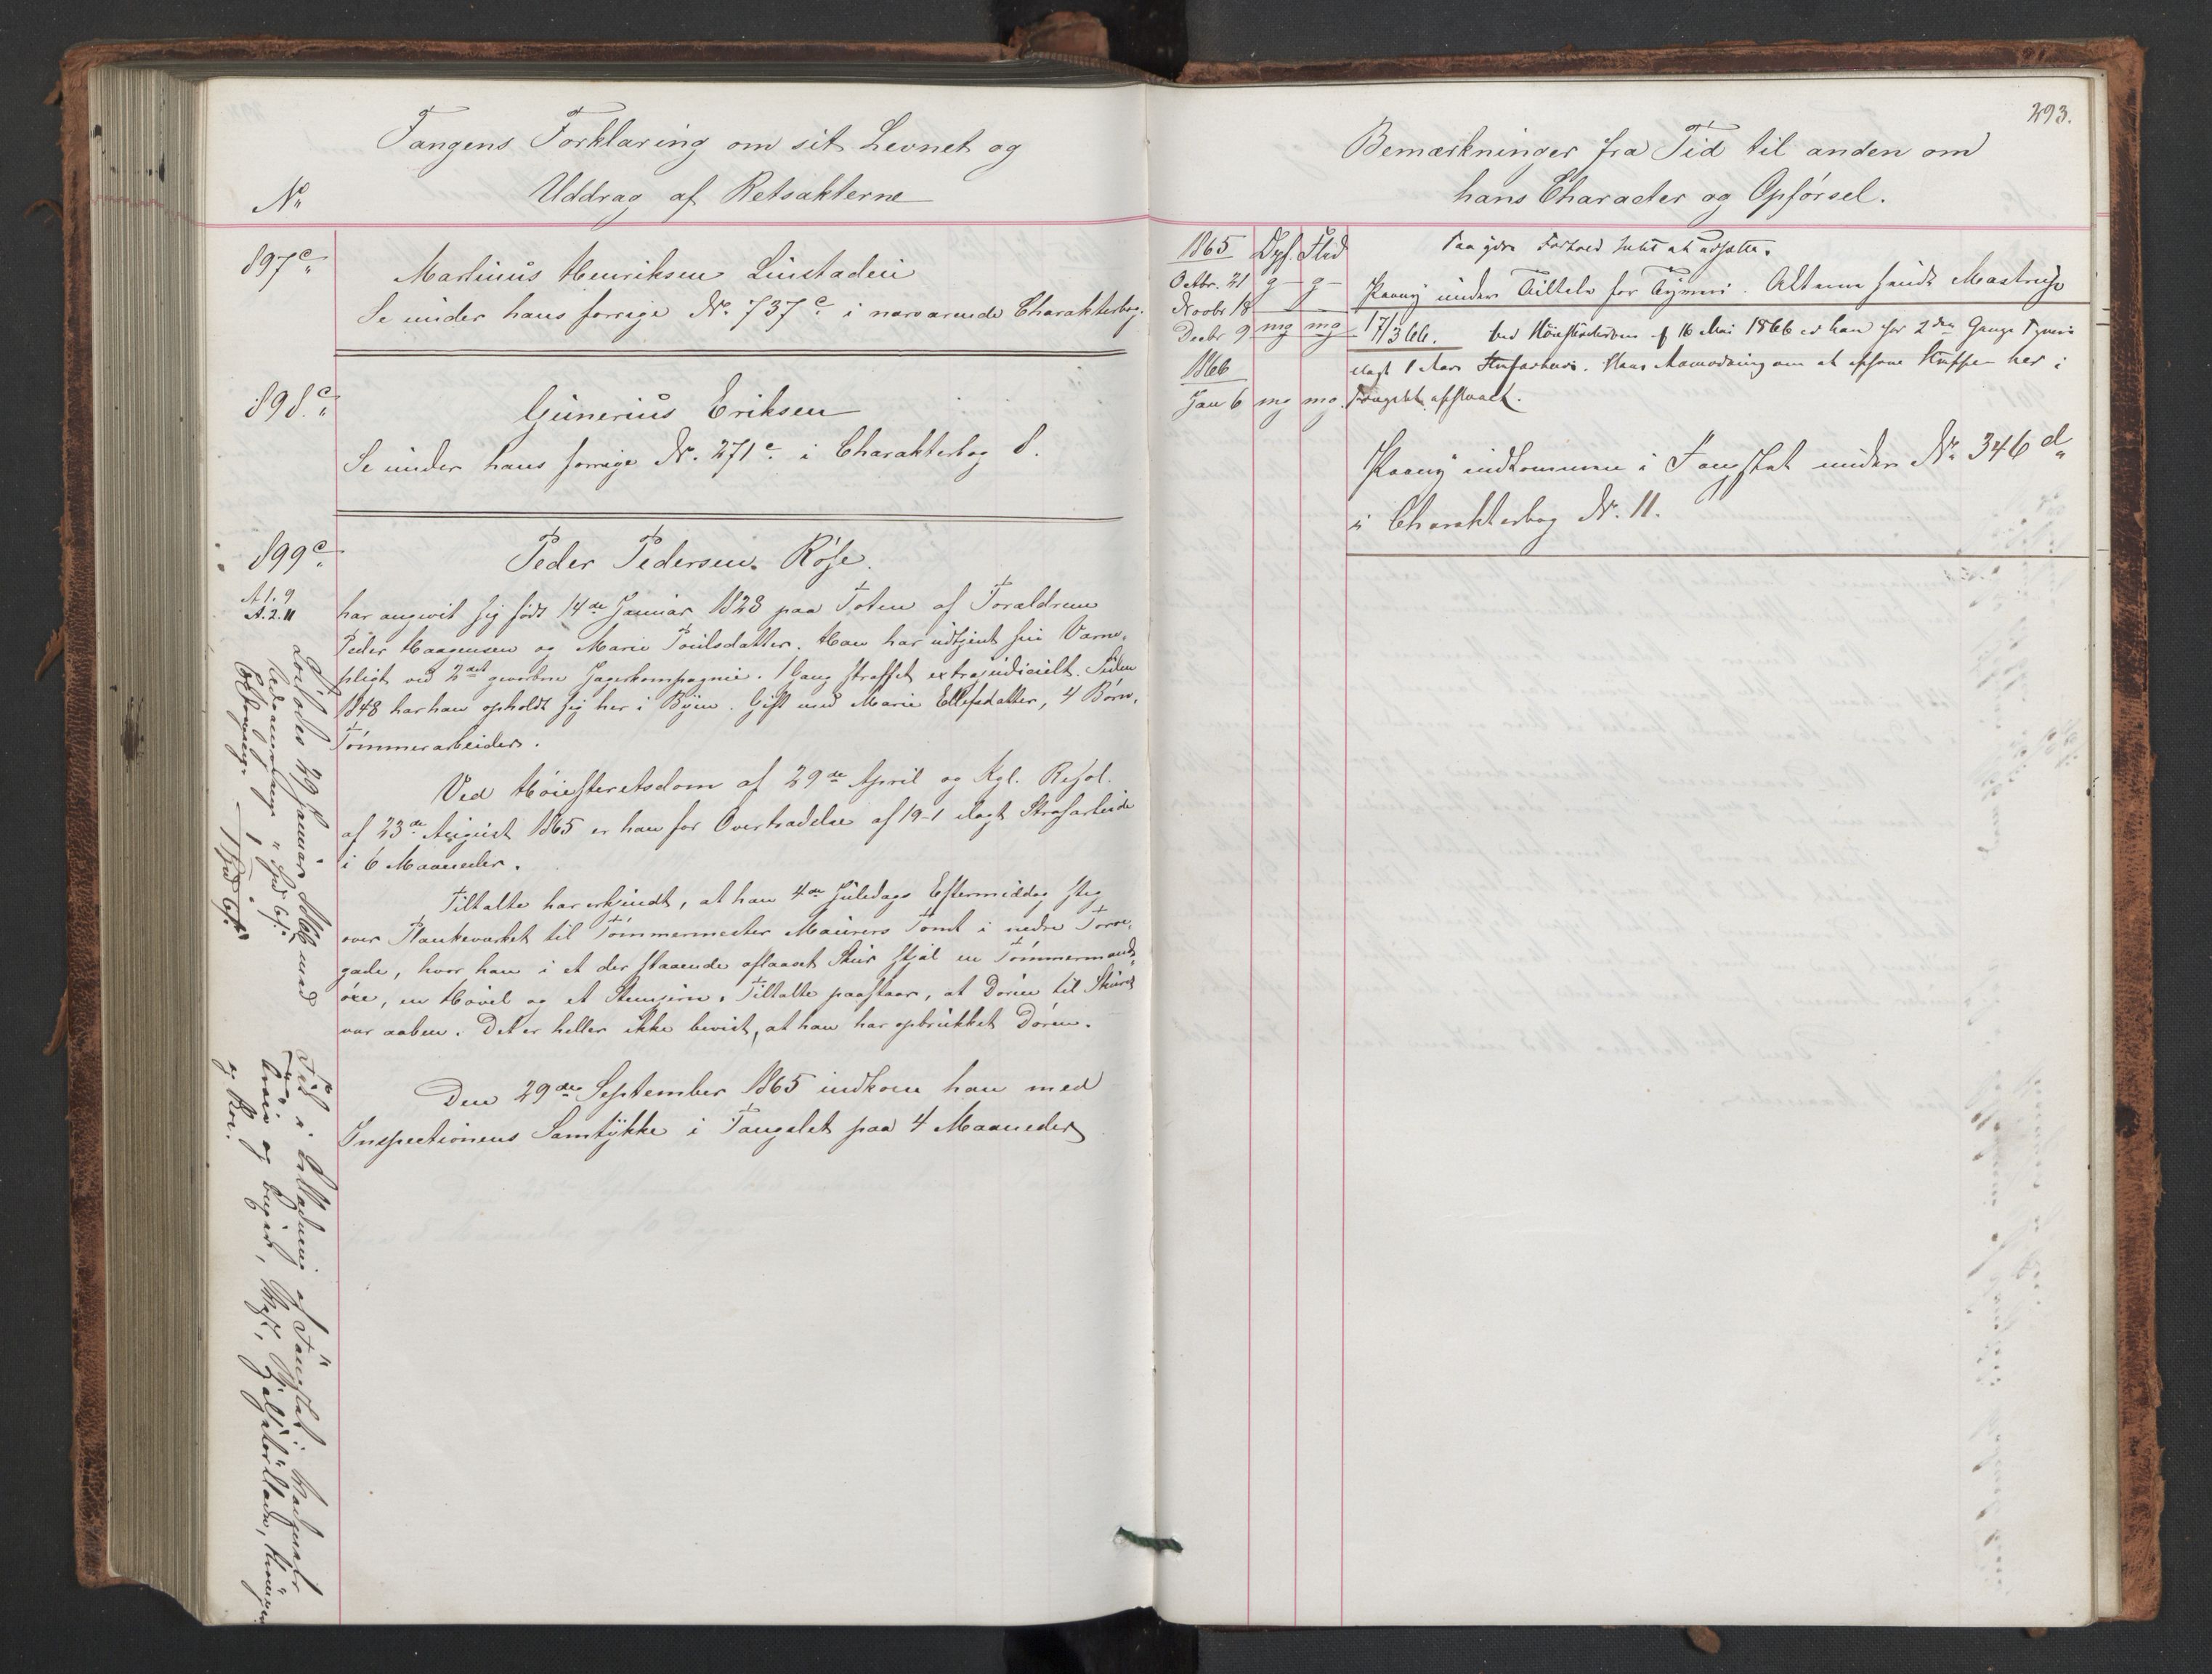 Fangens Forklaring om sit Levnet og
No Uddrag af Retsakterne
897c. Martinus Henriksen Linstadeie
Se under hans forrige No. 737c i nærværende Charakterbog.
898c. Gunerius Eriksen
Se under hans forrige No. 271c i Charakterbog 8.
899c. Peder Pedersen Røise.
A. 1. 9
A. 2. 11
har angivit sig født 14de Januar 1828 paa Toten af Forældrene
Peder Haagensen og Marie Poulsdatter. Han har udtjent sin Værne-
pligt ved 2det gevorbne Jægerkompagnie. 1 Gang straffet extrajudicielt. Siden
1848 har han opholdt sig her i Byen. Gift med Marie Ellefsdatter, 4 Børn,
Tømmerarbeider.
Ved Høiesteretsdom af 29de April og Kgl. Resol.
af 23de August 1865 er han for Overtrædelse af 19-1 ilagt Strafarbeide
i 6 Maaneder.
Tiltalte har erkjendt, at han 4de Juledags Eftermiddag steg
over Plankeværket til Tømmermester Maurers Tomt i nedre Torve-
gade, hvor han i et der staaende aflaaset Skur stjal en Tømmermands-
øxe, en Høvel og et Stemjern. Tiltalte paastaar, at Døren til Skuret
var aaben. Det er heller ikke bevist, at han har opbrukket Døren.
Den 29de September 1865 indkom han med
Inspectionens Samtykke i Fangslet paa 4 Maaneder
Løslodes 29 Januar 1866 med
1 Spd 6 s.
Født i
og Trøie.
293.
Bemærkninger fra Tid til anden om
hans Character og Opførsel.
1865 Opf. Flid
Octbr. 21 g g
Novbr 18
Decbr 9 mg mg
1866
Jan 6 mg mg.
Paa hans Forhold Intet at udsætte.
Paany under Tiltale for Tyveri.
17/3 66. Ved Høiesteretsdom af 16 Mai 1866 er han for 2den Gangs Tyveri
ilagt 1 Aars Strafarbeide. Hans Anmodning om at afsone Straffen her i
Fangslet afslaaet.
Paany indkommen i Fangslet under No. 346d
i Charakterbog No. 11.